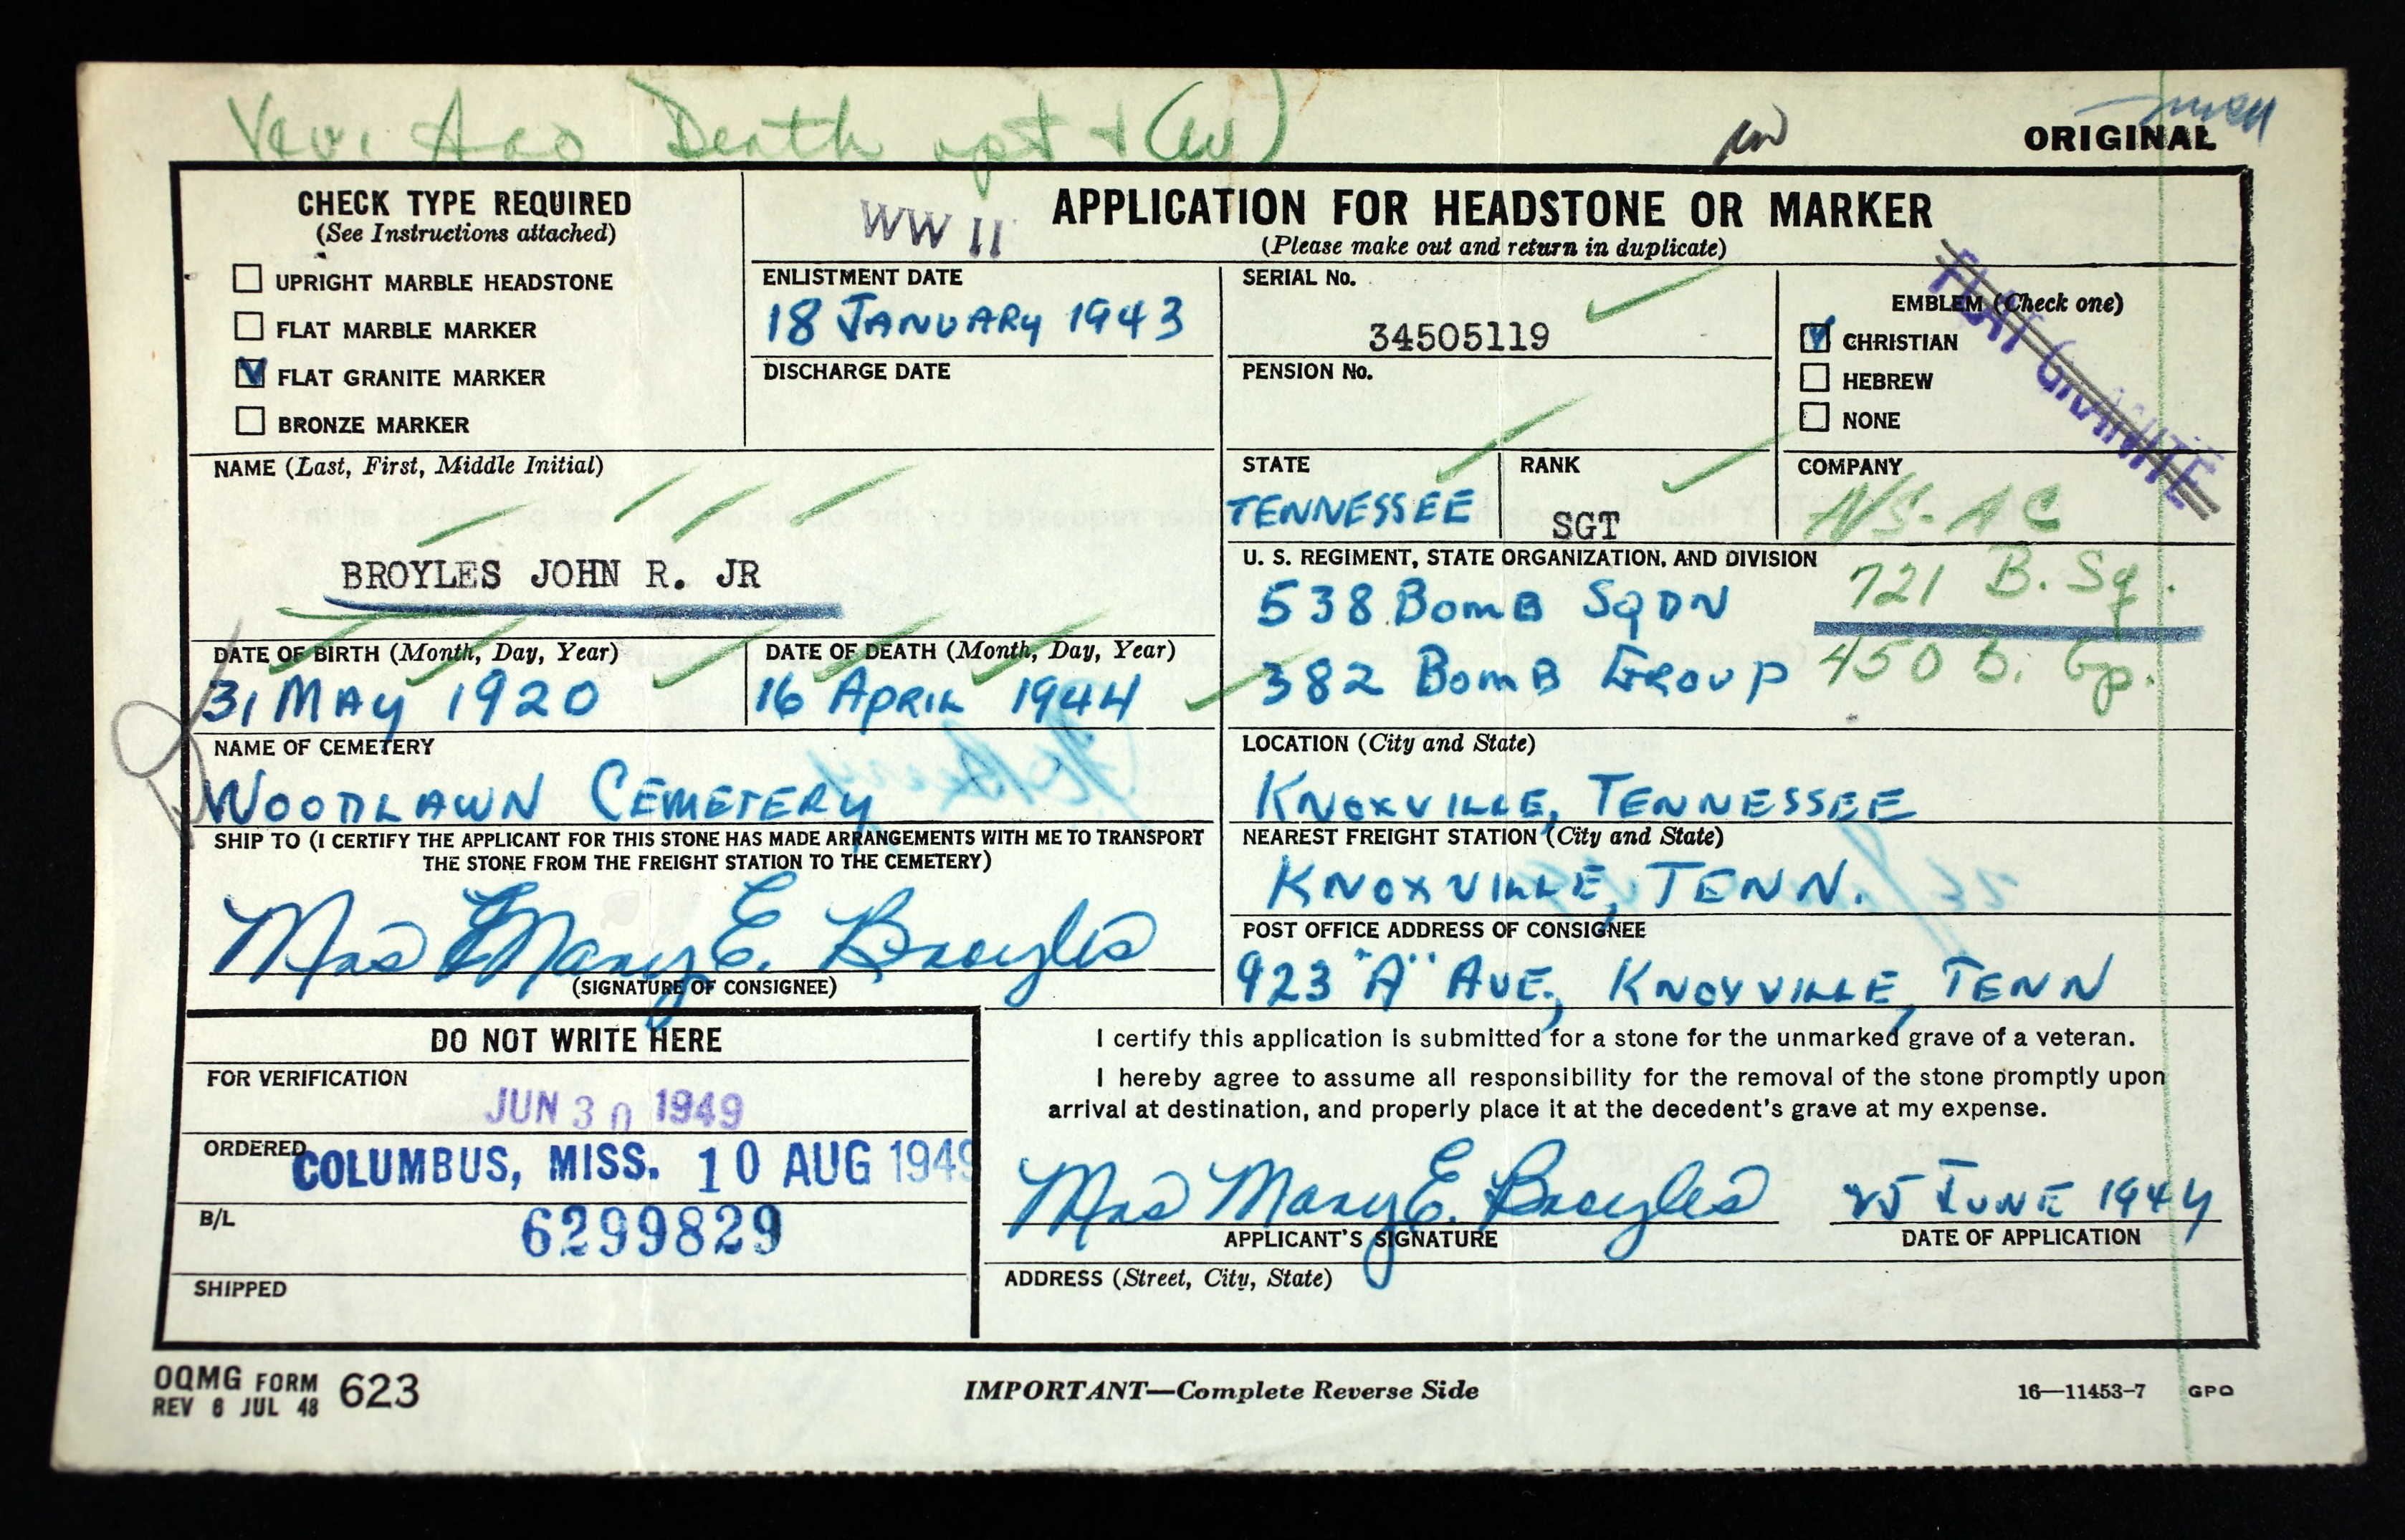 Death rpt
ORIGINAL
CHECK TYPE REQUIRED
(See Instructions attached)
UPRIGHT MARBLE HEADSTONE
FLAT MARBLE MARKER
FLAT GRANITE MARKER
BRONZE MARKER
WW II
APPLICATION FOR HEADSTONE OR MARKER
(Please make out and return in duplicate)
ENLISTMENT DATE
18 JANUARY 1943
DISCHARGE DATE
SERIAL No.
34505119
PENSION No.
EMBLEM (Check one)
CHRISTIAN
HEBREW
NONE
FLAT GRANITE
NAME (Last, First, Middle Initial)
BROYLES JOHN R. JR
STATE
TENNESSEE
RANK
SGT
COMPANY
NS-AC
U. S. REGIMENT, STATE ORGANIZATION, AND DIVISION
538 BOMB SQDN
721 B. Sq.
382 BOMB GROUP
450 B. Gp.
DATE OF BIRTH (Month, Day, Year)
31 MAY 1920
DATE OF DEATH (Month, Day, Year)
16 APRIL 1944
NAME OF CEMETERY
WOODLAWN CEMETERY
LOCATION (City and State)
KNOXVILLE, TENNESSEE
SHIP TO (I CERTIFY THE APPLICANT FOR THIS STONE HAS MADE ARRANGEMENTS WITH ME TO TRANSPORT
THE STONE FROM THE FREIGHT STATION TO THE CEMETERY)
Mrs Mary E. Broyles
(SIGNATURE OF CONSIGNEE)
NEAREST FREIGHT STATION (City and State)
KNOXVILLE, TENN.
POST OFFICE ADDRESS OF CONSIGNEE
923 "A" AVE., KNOXVILLE, TENN
DO NOT WRITE HERE
FOR VERIFICATION
JUN 30 1949
ORDERED
COLUMBUS, MISS. 10 AUG 1949
B/L
6299829
SHIPPED
I certify this application is submitted for a stone for the unmarked grave of a veteran.
I hereby agree to assume all responsibility for the removal of the stone promptly upon
arrival at destination, and properly place it at the decedent's grave at my expense.
Mrs Mary E. Broyles
APPLICANT'S SIGNATURE
25 JUNE 1944
DATE OF APPLICATION
ADDRESS (Street, City, State)
OQMG FORM 623
REV 6 JUL 48
IMPORTANT—Complete Reverse Side
16—11453-7 GPO